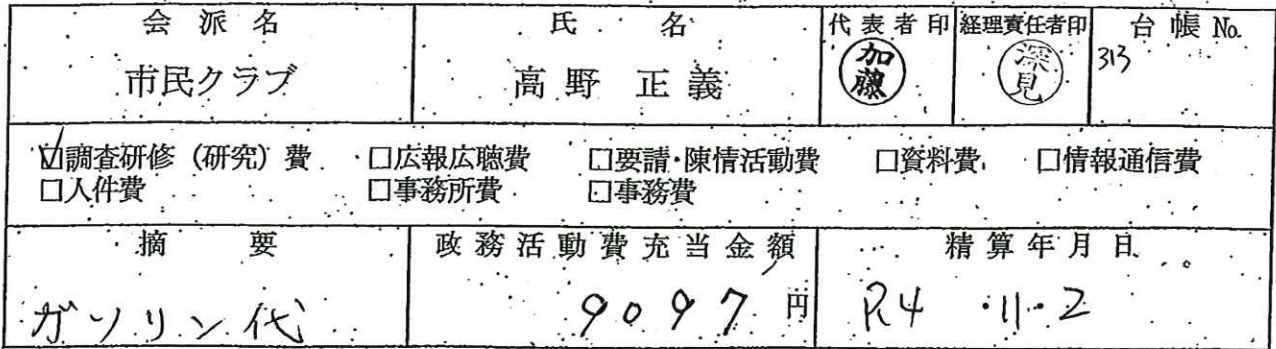 会派名 氏名 代表者印 経理責任者印 台帳No.
市民クラブ 高野 正義 加藤 深見 313
☑調査研修（研究）費 □広報広聴費 □要請・陳情活動費 □資料費 □情報通信費
□人件費 □事務所費 □事務費
摘要 政務活動費充当金額 精算年月日
ガソリン代 9097円 R4・11・2